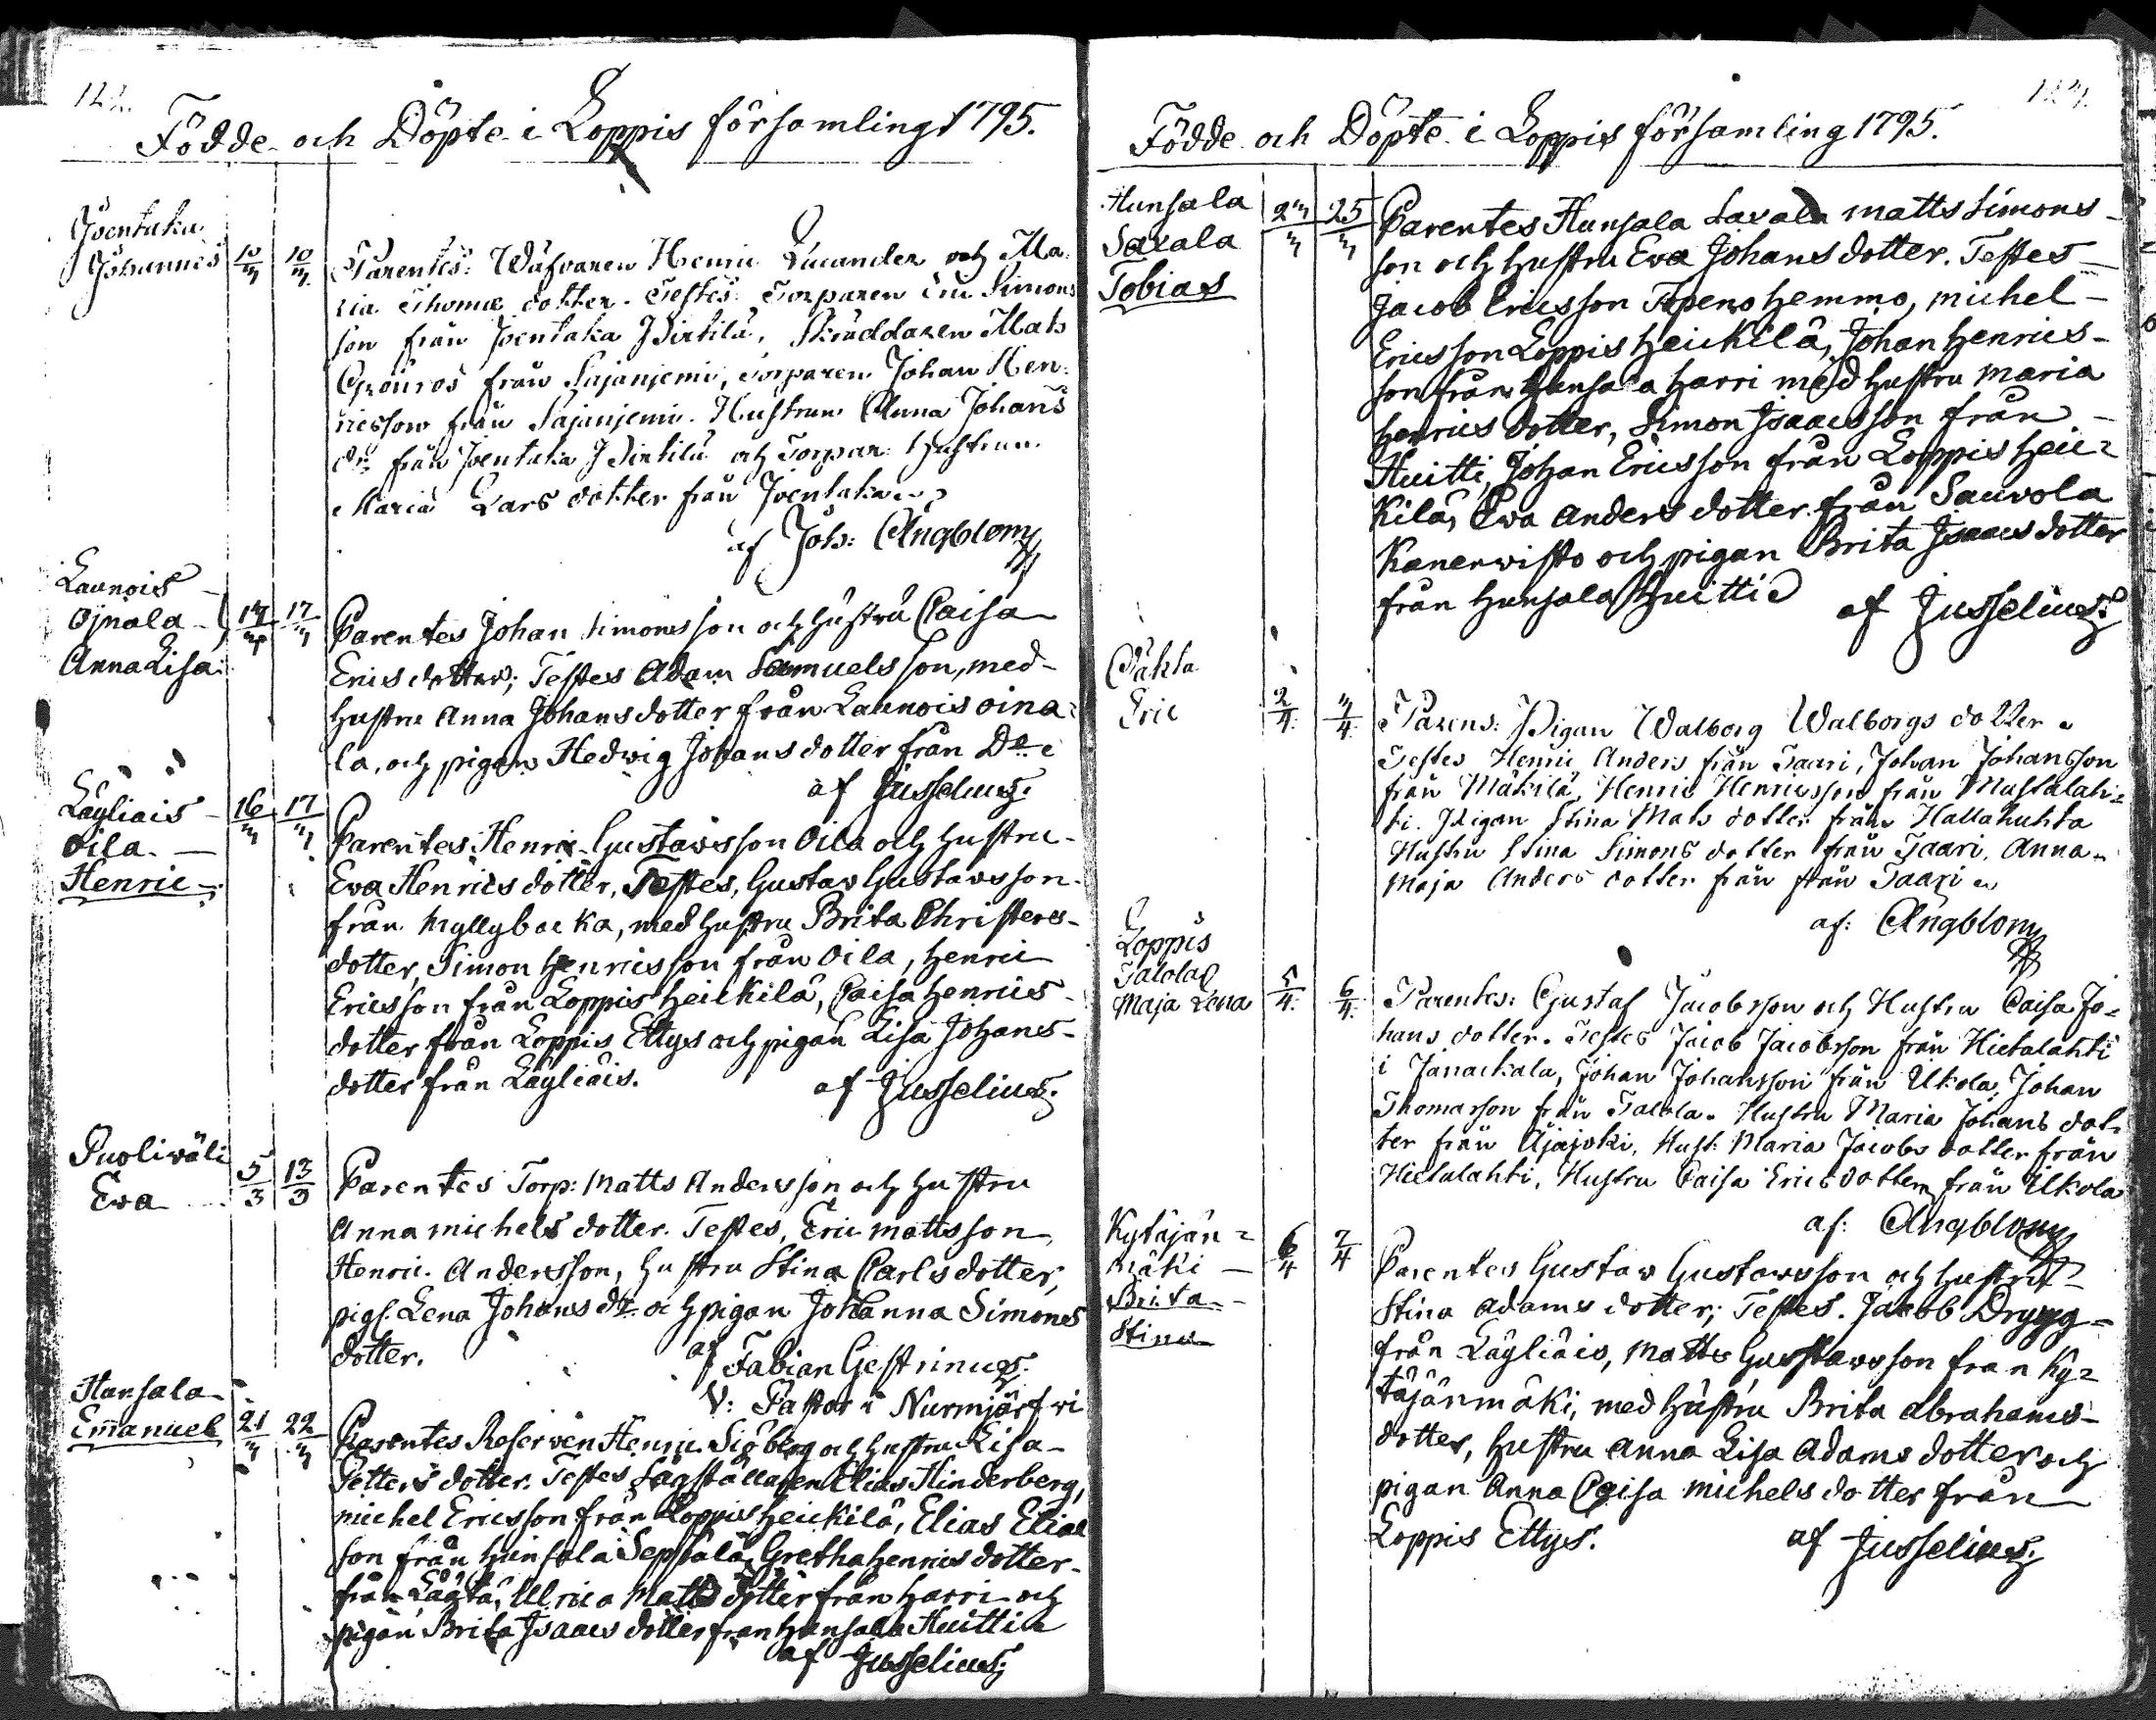 Födde och Döpte i Loppis församling 1795.
Joentaka
Johannes 10/3 10/3 Parentes: Wäfvaren Henric Lucander och Ma-
ria Thomæ dotter. Testes: Torparen Eric Simons
son från Joentaka Pirtilä, Skräddaren Mats
från Sajaniemi, Torparen Johan Hen-
ricsson från Sajaniemi. Hustrun Anna Johans
dr från Joentaka Pirtilä och Torpar: hustrun
Maria Lars dotter från Joentaka
af Joh: Ängblom
Launois
Ojnala
Anna Lisa 14/3 17/3 Parentes Johan Simonsson och hustru Caisa
Erics dotter; Testes Adam Samuelsson, med
hustru Anna Johansdotter från Launois oina-
la, och pigan Hedwig Johansdotter från Do
af Jusselius.
Läyliäis
Oila
Henric 16/3 17/3 Parentes Henric Gustavsson Oila och hustru
Eva Henrics dotter, Testes, Gustav Gustavsson
från Myllybacka, med hustru Brita Christers-
dotter, Simon Henricsson från Oila, Henric
Ericsson från Loppis Heickilä, Caisa Henrics-
dotter från Loppis Ettys och pigan Lisa Johans-
dotter från Läyliäis.
af Jusselius.
Puoliwäli
Eva 5/3 13/3 Parentes Torp: Matts Andersson och hustru
Anna Michels dotter. Testes, Eric Mattsson,
Henric Andersson, hustru Stina Carlsdotter,
pig. Lena Johans dr och pigan Johanna Simons
dotter.
af Fabian Gestrinus.
V: Pastor i Nurmijärfwi
Hunsala
Emanuel 21/3 22/3 Parentes Reserven Henric Siöberg och hustru Lisa
Petters dotter. Testes Elias Hinderberg,
Michel Ericsson från Loppis Heickilä, Elias Elias
son från Hunsala Seppälä, Gretha Henrics dotter
från Läyliä, Ulrica Matts dotter från Harri och
pigan Brita Isaacs dotter från Hunsala Huitti
af Jusselius.
Födde och Döpte i Loppis församling 1795.
Hunsala
Saxala
Tobias 24/3 25/3 Parentes Hunsala Saxala Matts Simons-
son och hustru Eva Johansdotter. Testes
Jacob Ericsson Topeno Hemmo, Michel
Ericsson Loppis Heickilä, Johan Henrics-
son från Hunsala Harri med hustru Maria
Henrics dotter, Simon Isaacsson från
Huitti, Johan Ericsson från Loppis Heic-
kilä, Eva Anders dotter från Sauvola
Kanerwisto och pigan Brita Isaacs dotter
från Hunsala Huitti
af Jusselius.
Eric 2/4 3/4 Parens: Pigan Walborg Walborgs dotter
Testes Henric Anders från Saari, Johan Johansson
från Mäkilä, Henric Henricsson från Mustalah-
ti. Pigan Stina Mats dotter från Hallakuhta
Hustru Stina Simons dotter från Saari, Anna
Maja Anders dotter från från Saari
af: Ängblom
Loppis
Talola
Maja Lena 5/4 6/4 Parentes: Gustaf Jacobsson och Hustru Caisa Jo-
hans dotter. Testes Jacob Jacobsson från Hietalahti
i Janackala, Johan Johansson från Ukola, Johan
Thomasson från Talola. Hustru Maria Johans dot-
ter från Äjäjoki, Hust: Maria Jacobs dotter från
Hietalahti, Hustru Caisa Erics dotter från Ukola
af: Ängblom
Kytäjän-
mäki
Brita
Stina 6/4 7/4 Parentes Gustav Gustavsson och hustru
Stina Adams dotter; Testes. Jacob Drygg
från Läyliäis, Matts Gustavsson från Ky-
täjänmäki, med hustru Brita Abrahams-
dotter, hustru Anna Lisa Adams dotter och
pigan Anna Caisa Michels dotter från
Loppis Ettys.
af Jusselius.